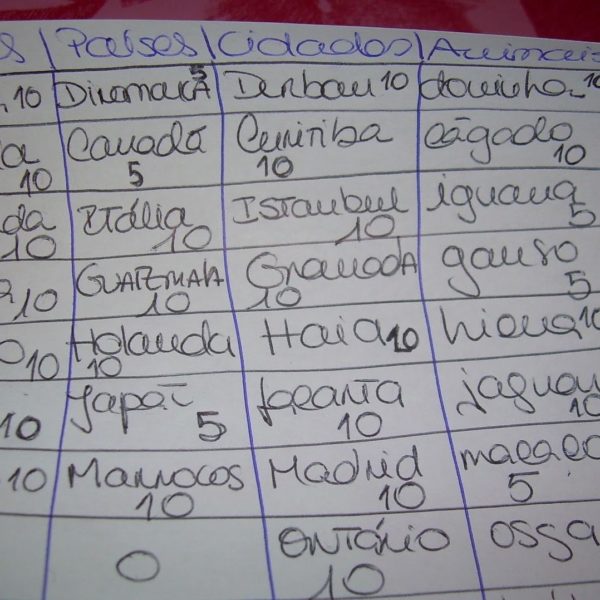 s | Países | Cidades | Animais
10 Dinamarca 5 Derban 10 doninha 10
a 10 Canadá 5 Curitiba 10 cágado 10
da 10 Itália 10 Istanbul 10 iguana 5
10 Guatemala 10 Granada 10 ganso 5
10 Holanda 10 Haia 10 hiena 10
10 Japão 5 Jacarta 10 jaguar 10
10 Marrocos 10 Madrid 10 macaco 5
0 Ontário 10 ossa